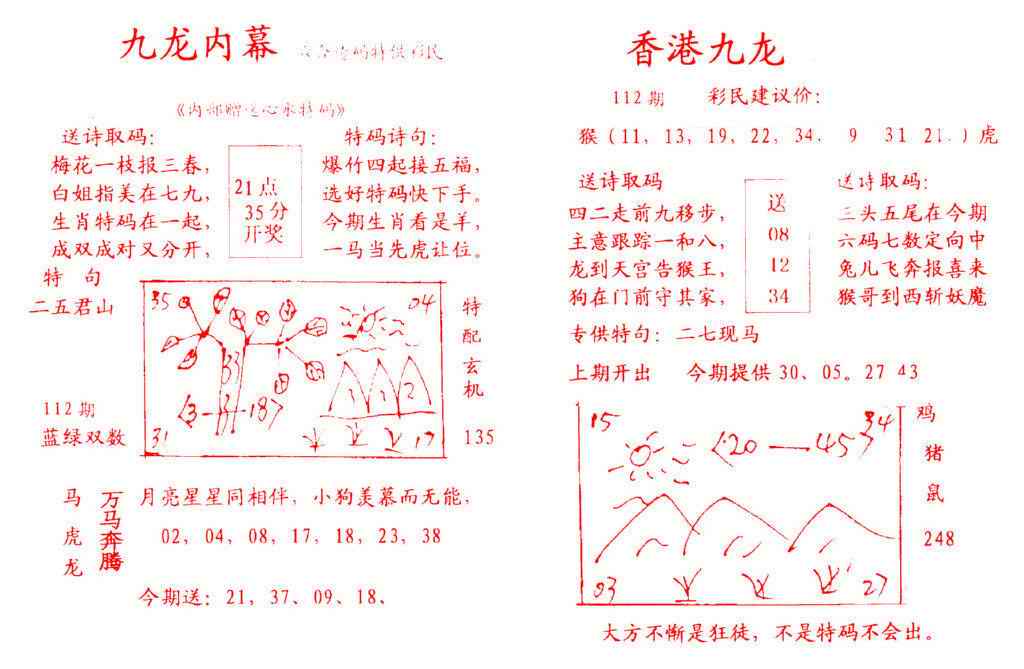 九龙内幕
《内部赠送心水特码》
送诗取码：
梅花一枝报三春，
白姐指美在七九，
生肖特码在一起，
成双成对又分开，
21点
35分
开奖
特码诗句：
爆竹四起接五福，
选好特码快下手。
今期生肖看是羊，
一马当先虎让位。
特 句
二五君山
112期
蓝绿双数
35
04
33
31
17
1
1
2
特配玄机
135
马
虎
龙
万马奔腾
月亮星星同相伴，小狗羡慕而无能，
02，04，08，17，18，23，38
今期送：21，37、09、18、
香港九龙
112期 彩民建议价：
猴（11，13，19，22，34. 9 31 21.）虎
送诗取码
四二走前九移步，
主意跟踪一和八，
龙到天宫告猴王，
狗在门前守其家，
送
08
12
34
送诗取码：
三头五尾在今期
六码七数定向中
兔儿飞奔报喜来
猴哥到西斩妖魔
专供特句：二七现马
上期开出 今期提供30、05。27 43
15
34
〈20—45〉
03
27
鸡
猪
鼠
248
大方不惭是狂徒，不是特码不会出。